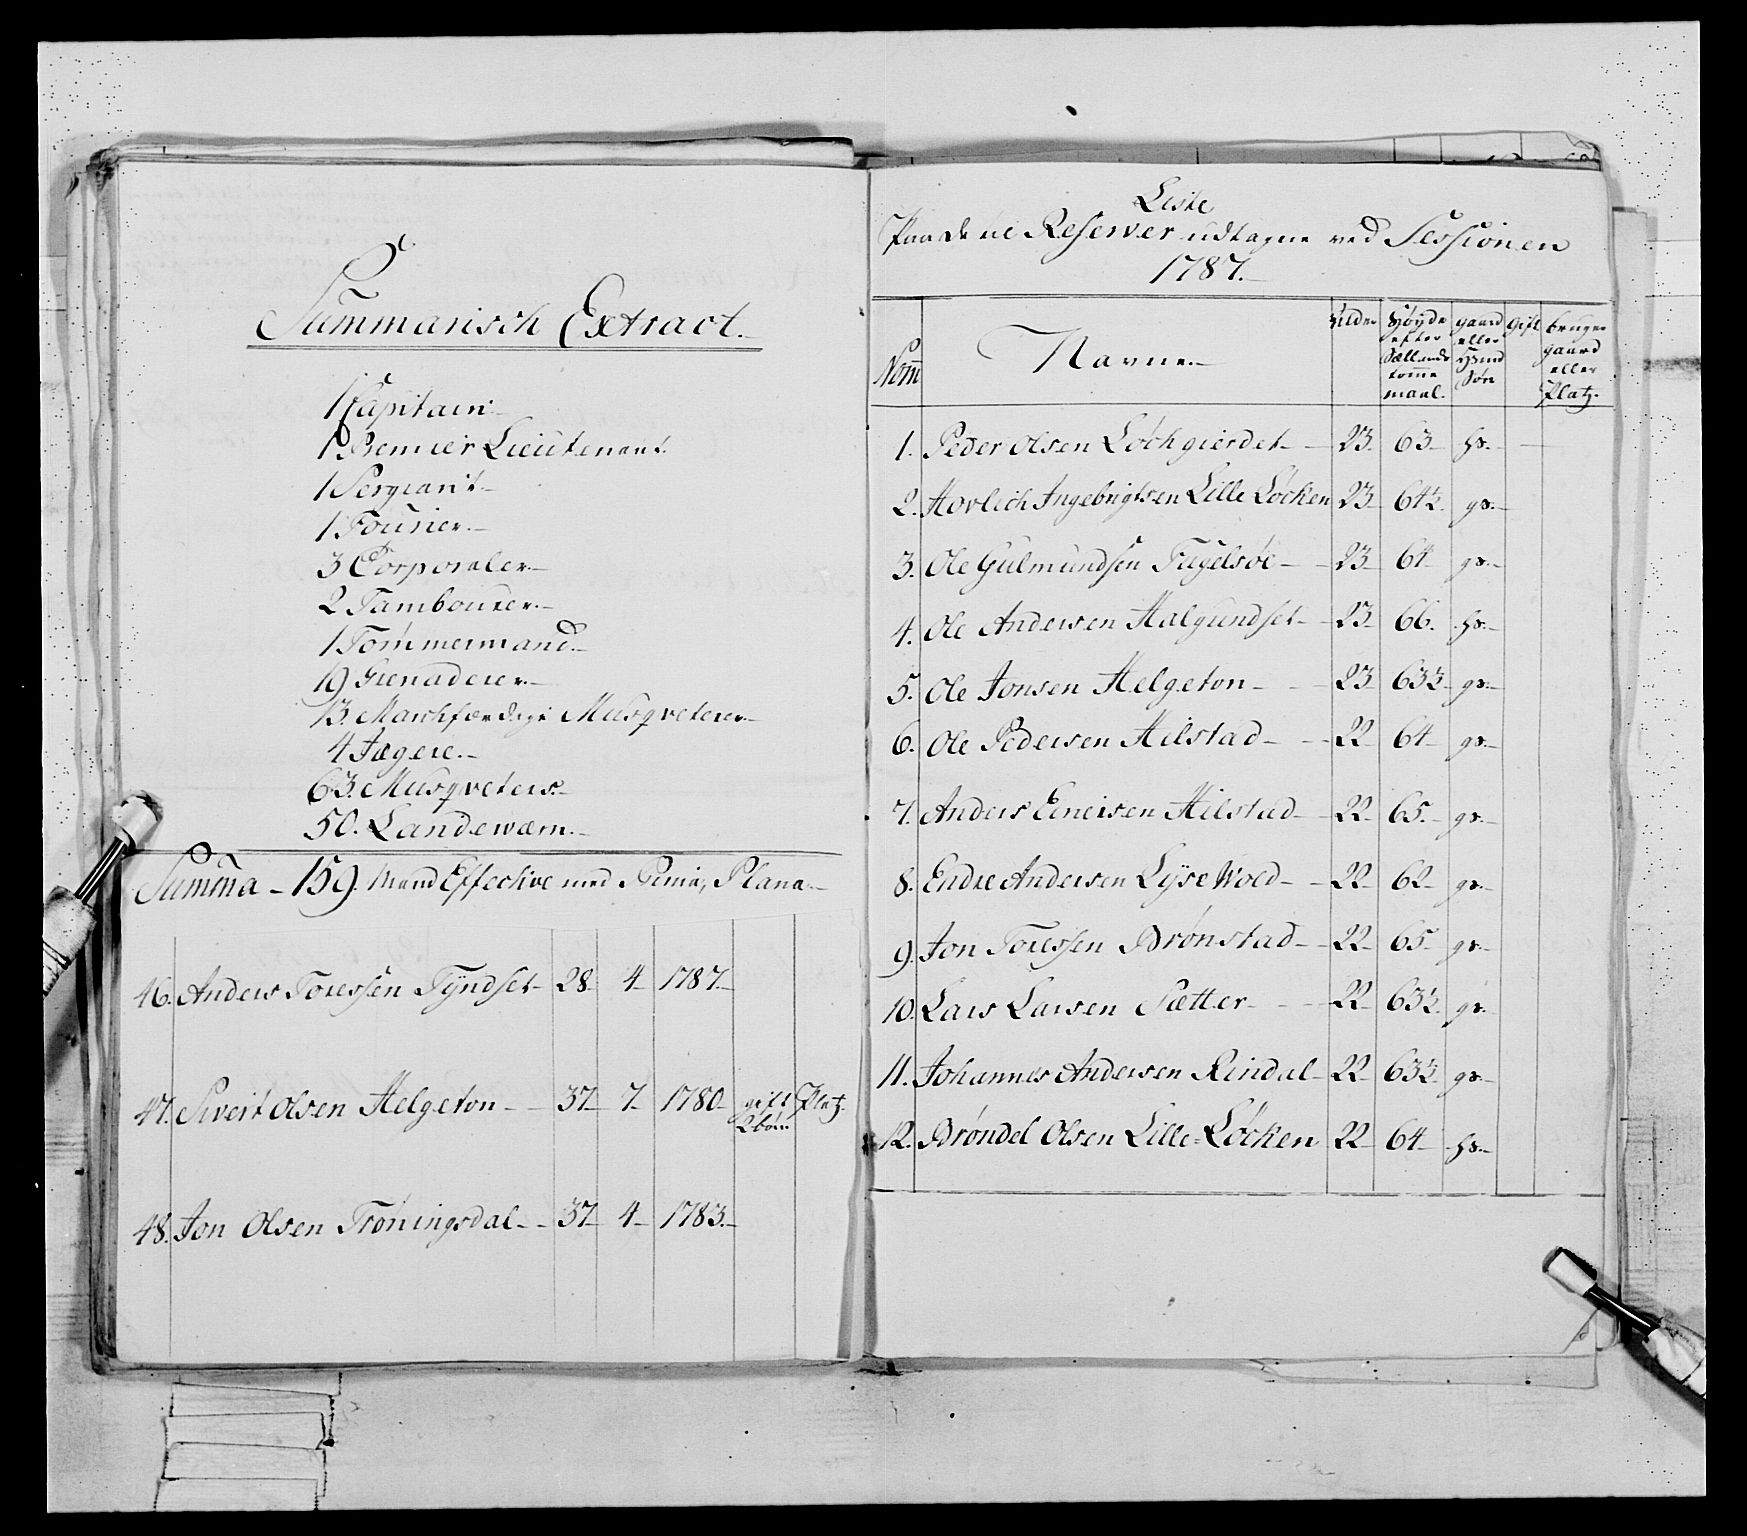 Summarisch Extract.
1 Capitain
1 Premier Lieutenant
1 Sergiant
1 Fourier.
3 Corporaler
2 Tambourer.
1 Tømmermand
19 Grenaderer.
13. Marchfærdige Musqveterer
4 Jægere.
63. Musqveters.
50. Landewærn.
Summa - 159. Mand Effective med Prima, Plana.
46. Anders Toressen Tÿndset 28 4 1787.
47. Sivert Olsen Helgeton 37 7 1780 gift Platz.
2 børn
48. Jon Olsen Trøningsdal 37 4 1783.
Liste
Paa de ne Reserver udtagne ved Sessionen
1787.
Nom̄
Navne.
Alder
Høyde efter Sællands tomme maal.
gaard eller Huusmd Søn
Gift
bruger gaard eller Platz.
1. Peder Olsen Løchgierdet 23 63 hs.
2. Hovlich Ingebrigtsen Lille Løcken 23 64½ gs.
3. Ole Gulmundsen Fugelsøe 23 64 gs.
4. Ole Andersen Halgundset 23 66. hs.
5. Ole Jonsen Helgeton 23 63½ gs.
6. Ole Pedersen Hilstad 22 64 gs.
7. Anders Enersen Hilstad 22 65. gs.
8. Endre Andersen Lÿse Wold 22 62 gs.
9. Jon Toressen Brønstad 22 65 gs.
10. Lars Larsen Sætter 22 63½ gs.
11. Johannes Andersen Rindal 22 63½ gs.
12. Brøndel Olsen Lille-Løcken 22 64 hs.